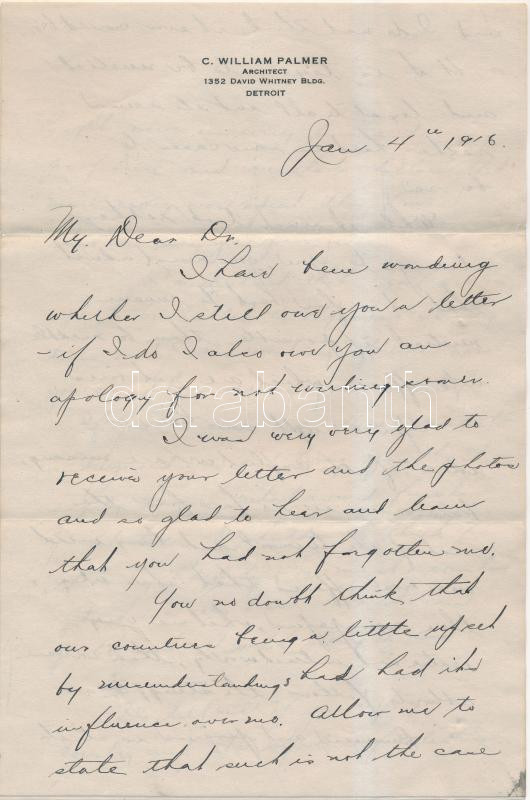 C. WILLIAM PALMER
ARCHITECT
1352 DAVID WHITNEY BLDG.
DETROIT
Jan 4th 1916.
My Dear Dr.
I have been wondering
whether I still owe you a letter
- if I do I also owe you an
apology for not writing sooner.
darabanth
I was very very glad to
receive your letter and the photos
and so glad to hear and learn
that you had not forgotten me.
You no doubt think that
our countries being a little upset
by misunderstandings had had its
influence over me. Allow me to
state that such is not the case